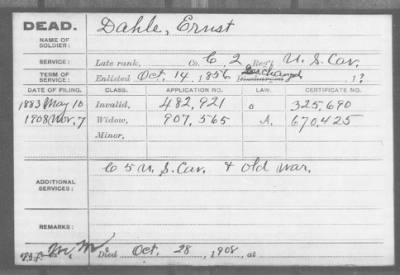 DEAD. Dahle, Ernst
NAME OF SOLDIER:
SERVICE: Late rank, Co. C, 2 Reg't U. S. Cav.
TERM OF SERVICE: Enlisted Oct. 14, 1856, Discharged , 1?
DATE OF FILING. CLASS. APPLICATION NO. LAW. CERTIFICATE NO.
1883 May 10 Invalid, 482,921 325,690
1908 Nov. 7 Widow, 907,565 A. 670,425
Minor,
ADDITIONAL SERVICES: C 5 U. S. Cav. & Old War.
REMARKS:
Died Oct. 28, 1908, at